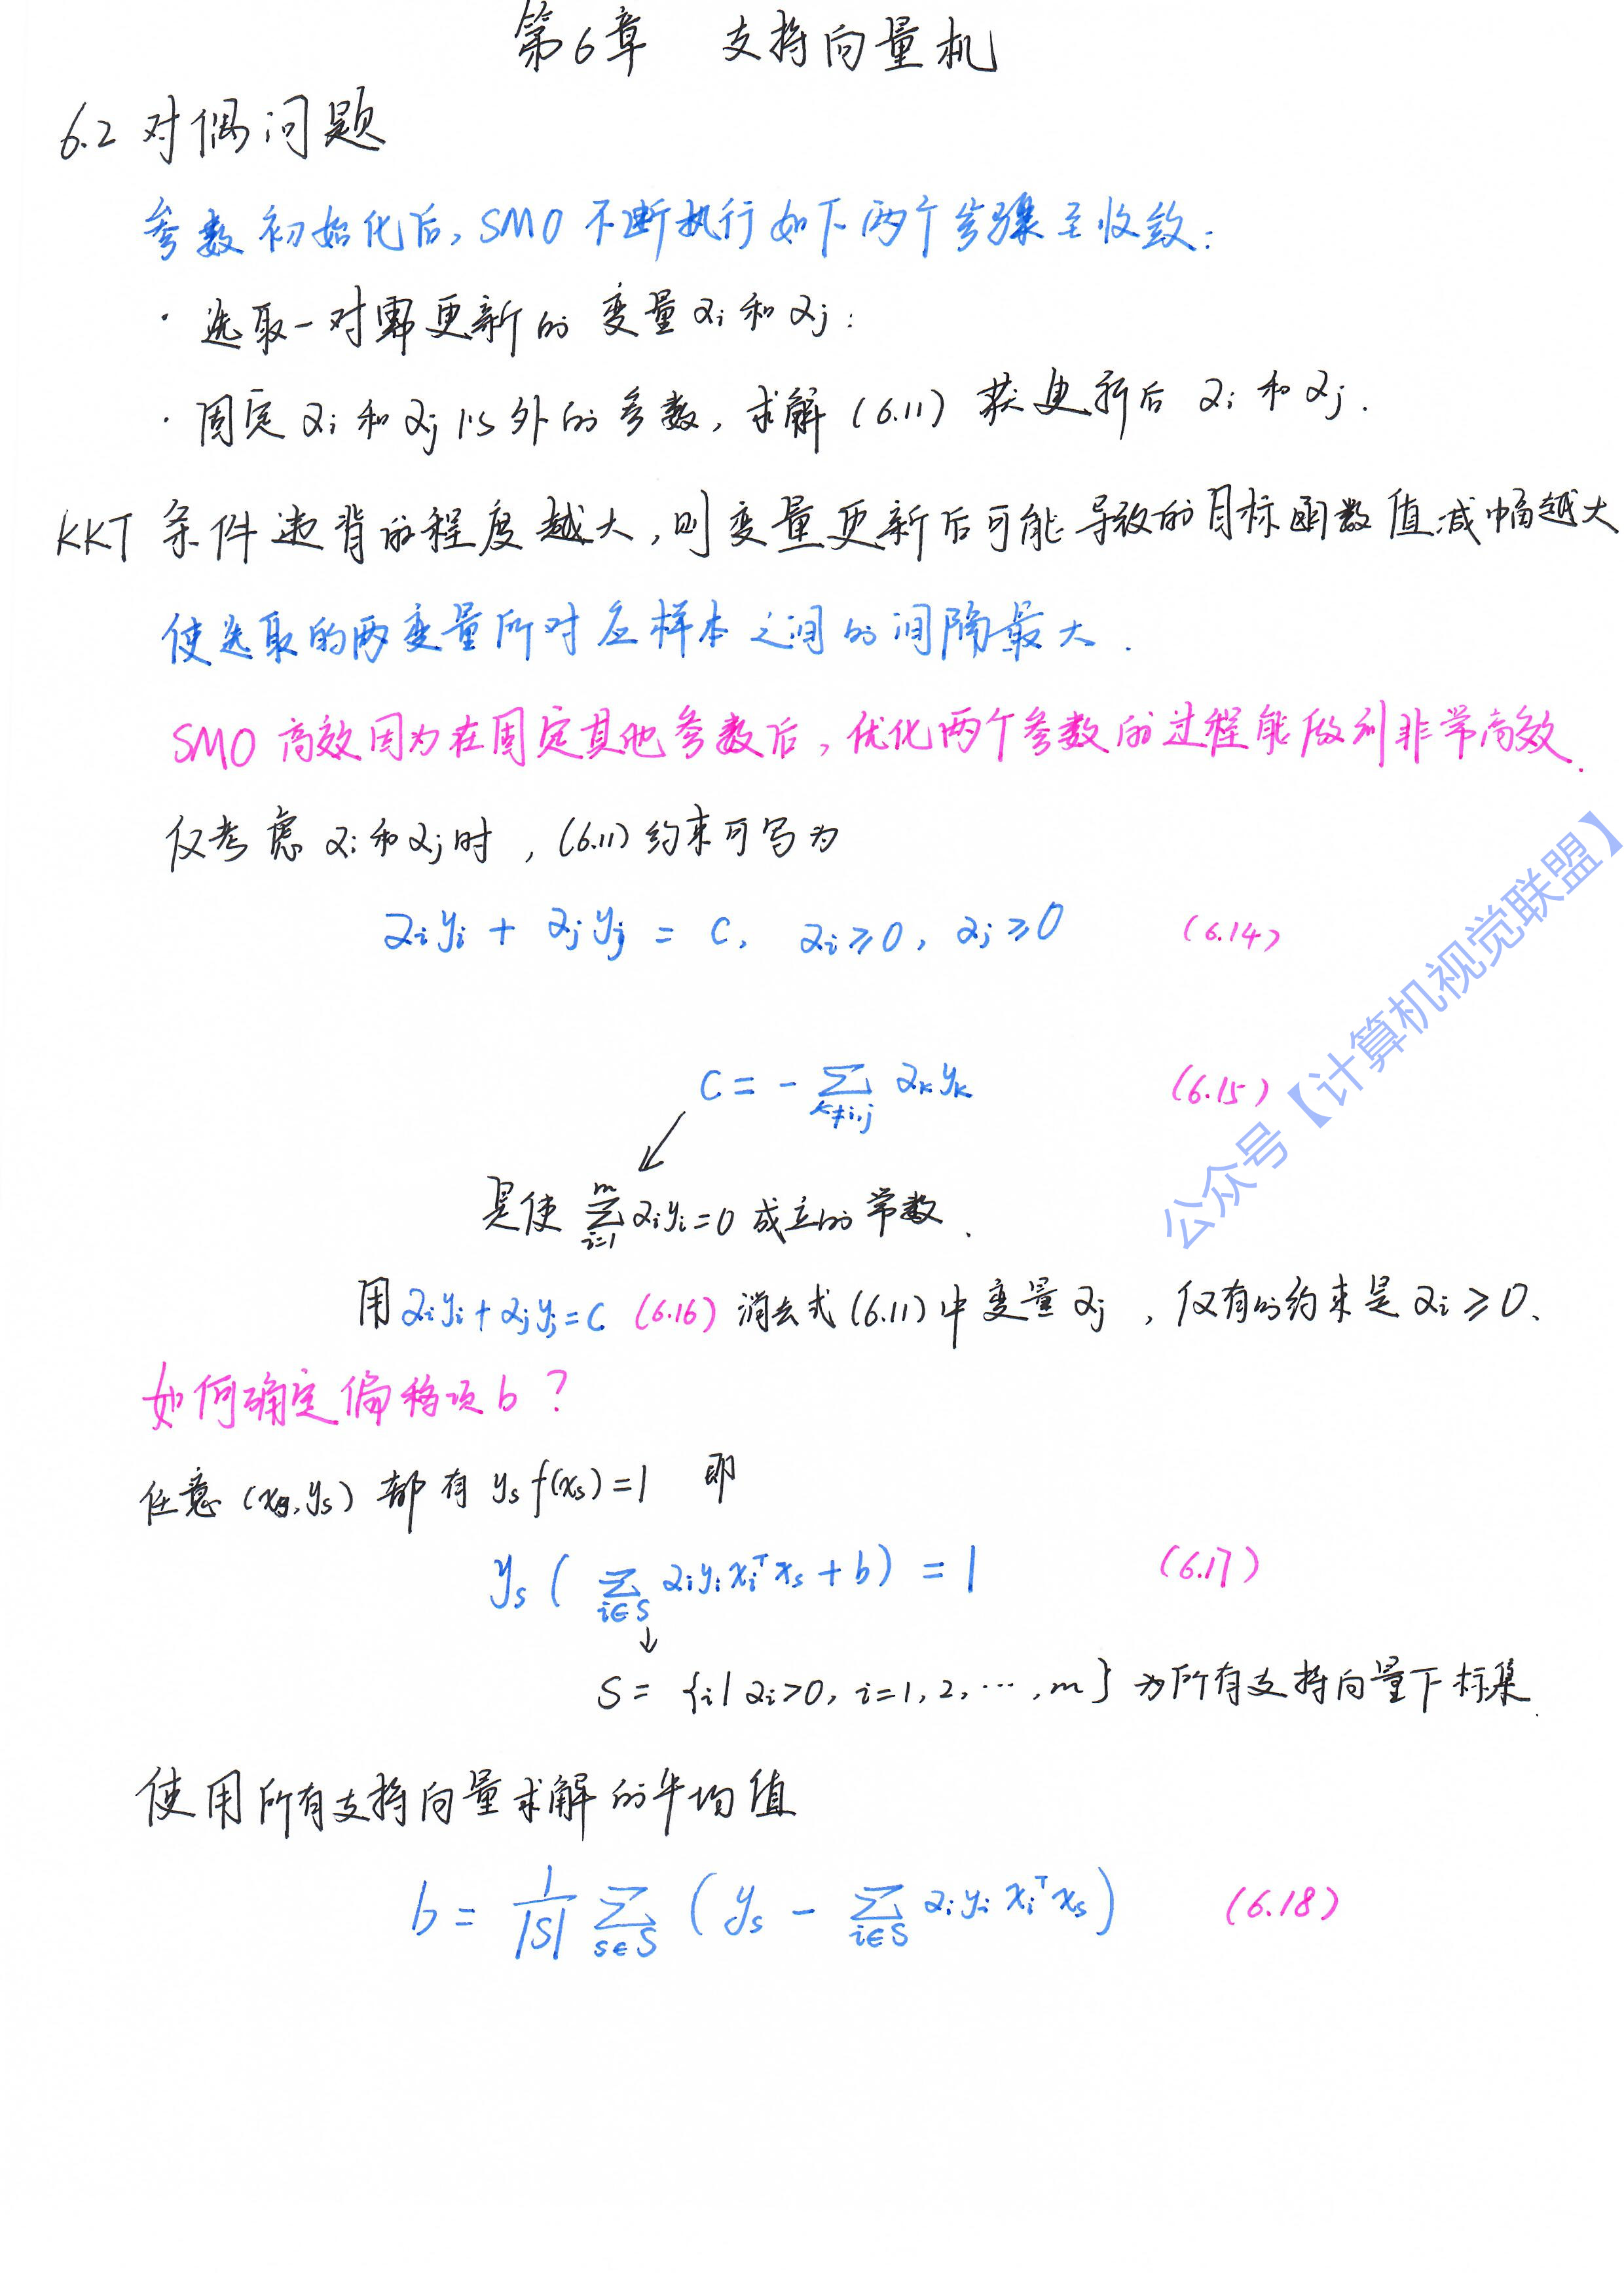 第6章 支持向量机
6.2 对偶问题
参数初始化后, SMO 不断执行如下两个步骤至收敛:
· 选取一对需更新的变量 αi 和 αj:
· 固定 αi 和 αj 以外的参数, 求解 (6.11) 获更新后 αi 和 αj.
KKT 条件违背的程度越大, 则变量更新后可能导致的目标函数值减幅越大
使选取的两变量所对应样本之间的间隔最大.
SMO 高效因为在固定其他参数后, 优化两个参数的过程能做到非常高效.
仅考虑 αi 和 αj 时, (6.11) 约束可写为
αi yi + αj yj = c, αi ≥ 0, αj ≥ 0 (6.14)
c = - ∑_{k≠i,j} αk yk (6.15)
是使 ∑_{i=1}^{m} αi yi = 0 成立的常数.
用 αi yi + αj yj = c (6.16) 消去式 (6.11) 中变量 αj, 仅有的约束是 αi ≥ 0.
如何确定偏移项 b?
任意 (xs, ys) 都有 ys f(xs) = 1 即
ys ( ∑_{i∈S} αi yi xi^T xs + b ) = 1 (6.17)
S = {i | αi > 0, i = 1, 2, ⋯, m} 为所有支持向量下标集.
使用所有支持向量求解的平均值
b = 1/|S| ∑_{s∈S} ( ys - ∑_{i∈S} αi yi xi^T xs ) (6.18)
公众号【计算机视觉联盟】